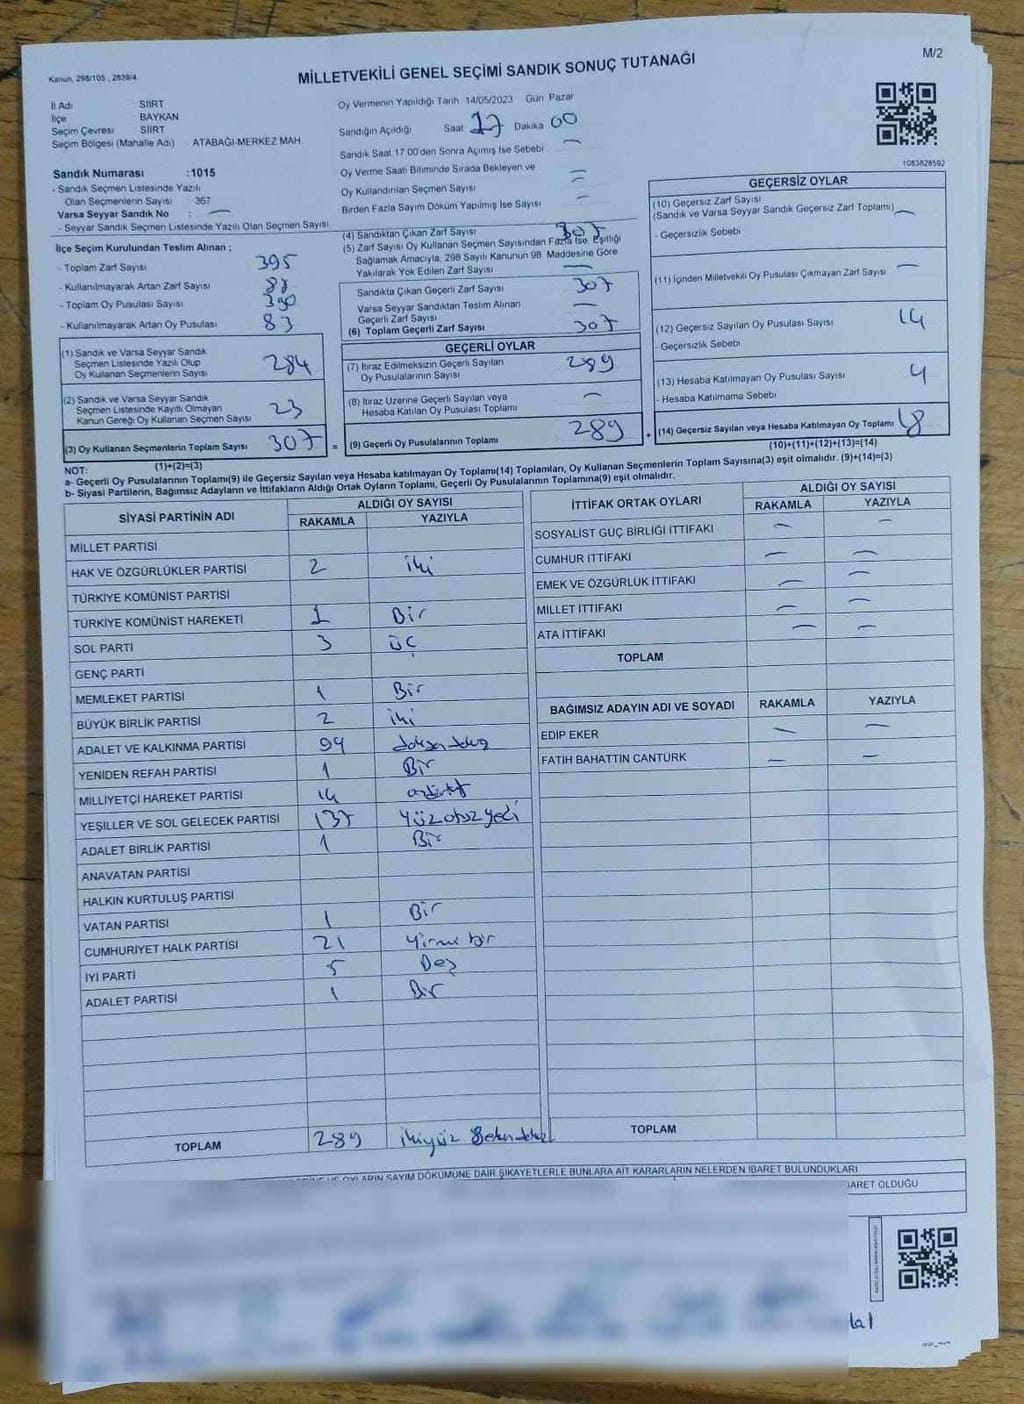 M/2
Kanun, 298/105 , 2839/4
MİLLETVEKİLİ GENEL SEÇİMİ SANDIK SONUÇ TUTANAĞI
İl Adı SİİRT
İlçe BAYKAN
Seçim Çevresi SİİRT
Seçim Bölgesi (Mahalle Adı) ATABAĞI-MERKEZ MAH.
Sandık Numarası :1015
- Sandık Seçmen Listesinde Yazılı
Olan Seçmenlerin Sayısı 367
Varsa Seyyar Sandık No : —
- Seyyar Sandık Seçmen Listesinde Yazılı Olan Seçmen Sayısı
Oy Vermenin Yapıldığı Tarih 14/05/2023 Gün Pazar
Sandığın Açıldığı Saat 17 Dakika 00
Sandık Saat 17.00'den Sonra Açımış İse Sebebi —
Oy Verme Saati Bitiminde Sırada Bekleyen ve
Oy Kullandırılan Seçmen Sayısı
Birden Fazla Sayım Döküm Yapılmış İse Sayısı —
1083828592
İlçe Seçim Kurulundan Teslim Alınan ;
- Toplam Zarf Sayısı 395
- Kullanılmayarak Artan Zarf Sayısı 88
- Toplam Oy Pusulası Sayısı 390
- Kullanılmayarak Artan Oy Pusulası 83
(1) Sandık ve Varsa Seyyar Sandık
Seçmen Listesinde Yazılı Olup
Oy Kullanan Seçmenlerin Sayısı 284
(2) Sandık ve Varsa Seyyar Sandık
Seçmen Listesinde Kayıtlı Olmayan
Kanun Gereği Oy Kullanan Seçmen Sayısı 23
(3) Oy Kullanan Seçmenlerin Toplam Sayısı 307 =
(1)+(2)=(3)
(4) Sandıktan Çıkan Zarf Sayısı 307
(5) Zarf Sayısı Oy Kullanan Seçmen Sayısından Fazla İse, Eşitliği
Sağlamak Amacıyla, 298 Sayılı Kanunun 98. Maddesine Göre
Yakılarak Yok Edilen Zarf Sayısı —
Sandıkta Çıkan Geçerli Zarf Sayısı 307
Varsa Seyyar Sandıktan Teslim Alınan
Geçerli Zarf Sayısı —
(6) Toplam Geçerli Zarf Sayısı 307
GEÇERLİ OYLAR
(7) İtiraz Edilmeksizin Geçerli Sayılan
Oy Pusulalarının Sayısı 289
(8) İtiraz Üzerine Geçerli Sayılan veya
Hesaba Katılan Oy Pusulası Toplamı —
(9) Geçerli Oy Pusulalarının Toplamı 289 +
GEÇERSİZ OYLAR
(10) Geçersiz Zarf Sayısı
(Sandık ve Varsa Seyyar Sandık Geçersiz Zarf Toplamı) —
- Geçersizlik Sebebi
(11) İçinden Milletvekili Oy Pusulası Çıkmayan Zarf Sayısı —
(12) Geçersiz Sayılan Oy Pusulası Sayısı 14
- Geçersizlik Sebebi
(13) Hesaba Katılmayan Oy Pusulası Sayısı 4
- Hesaba Katılmama Sebebi
(14) Geçersiz Sayılan veya Hesaba Katılmayan Oy Toplamı 18
(10)+(11)+(12)+(13)=(14)
NOT:
a- Geçerli Oy Pusulalarının Toplamı(9) ile Geçersiz Sayılan veya Hesaba katılmayan Oy Toplamı(14) Toplamları, Oy Kullanan Seçmenlerin Toplam Sayısına(3) eşit olmalıdır. (9)+(14)=(3)
b- Siyasi Partilerin, Bağımsız Adayların ve İttifakların Aldığı Ortak Oyların Toplamı, Geçerli Oy Pusulalarının Toplamına(9) eşit olmalıdır.
SİYASİ PARTİNİN ADI ALDIĞI OY SAYISI
RAKAMLA YAZIYLA
MİLLET PARTİSİ
HAK VE ÖZGÜRLÜKLER PARTİSİ 2 iki
TÜRKİYE KOMÜNİST PARTİSİ
TÜRKİYE KOMÜNİST HAREKETİ 1 Bir
SOL PARTİ 3 üç
GENÇ PARTİ
MEMLEKET PARTİSİ 1 Bir
BÜYÜK BİRLİK PARTİSİ 2 iki
ADALET VE KALKINMA PARTİSİ 99
YENİDEN REFAH PARTİSİ 1 Bir
MİLLİYETÇİ HAREKET PARTİSİ 14 ondört
YEŞİLLER VE SOL GELECEK PARTİSİ 137 yüzotuzyedi
ADALET BİRLİK PARTİSİ 1 Bir
ANAVATAN PARTİSİ
HALKIN KURTULUŞ PARTİSİ
VATAN PARTİSİ 1 Bir
CUMHURİYET HALK PARTİSİ 21 yirmi bir
İYİ PARTİ 5 Beş
ADALET PARTİSİ 1 Bir
TOPLAM 289 ikiyüz
İTTİFAK ORTAK OYLARI ALDIĞI OY SAYISI
RAKAMLA YAZIYLA
SOSYALİST GÜÇ BİRLİĞİ İTTİFAKI — —
CUMHUR İTTİFAKI — —
EMEK VE ÖZGÜRLÜK İTTİFAKI — —
MİLLET İTTİFAKI — —
ATA İTTİFAKI — —
TOPLAM
BAĞIMSIZ ADAYIN ADI VE SOYADI RAKAMLA YAZIYLA
EDİP EKER — —
FATİH BAHATTİN CANTÜRK — —
TOPLAM
OYLARIN SAYIM DÖKÜMÜNE DAİR ŞİKAYETLERLE BUNLARA AİT KARARLARIN NELERDEN İBARET BULUNDUKLARI
İBARET OLDUĞU